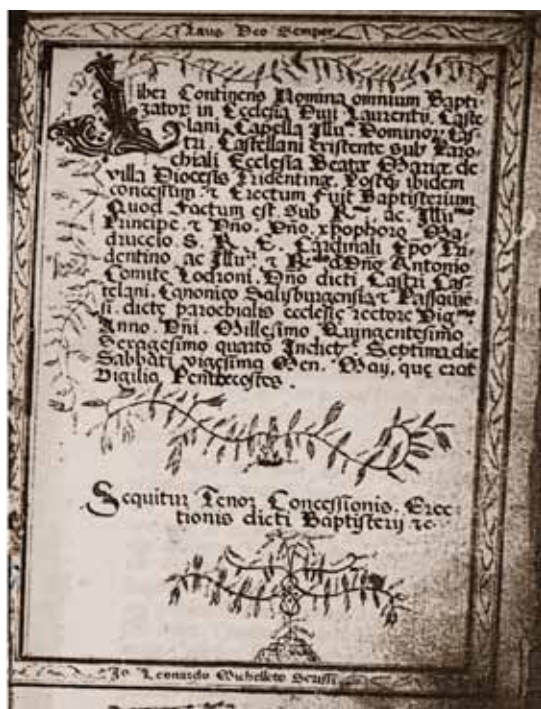 Laus Deo Semper
Liber Continens Nomina omnium Bapti-
zator in Ecclesia Divi Laurentij, Caste
lani, Capella Illu. Dominor Cas-
tri, Castellani existente sub Paro-
chiali Ecclesia Beatæ Mariæ de
villa Diocesis Tridentinæ, Postq ibidem
concessum & Erectum fuit Baptisterium
Quod Factum est sub R.mo ac Illu.mo
Principe & Dño. Dño. xpophoro Ma-
druccio S. R. E. Cardinali Epo Tri-
dentino ac Illu. & R.mo d Dño Antonio
Comite Lodroni. Dño dicti Castri Cas-
telani. Canonico Salisburgensi & Passavie
si. dictę parochialis ecclesię rectore Dig.mo
Anno. Dñi. Millesimo Quingentesimo
Sexagesimo quarto Indict. Septima die
Sabbati vigesima Men. May, quę erat
Vigilia Pentecostes.
Sequitur Tenor Concessionis. Erec-
tionis dicti Baptisterij &c
Jo. Leonardo Michelleto Scussi